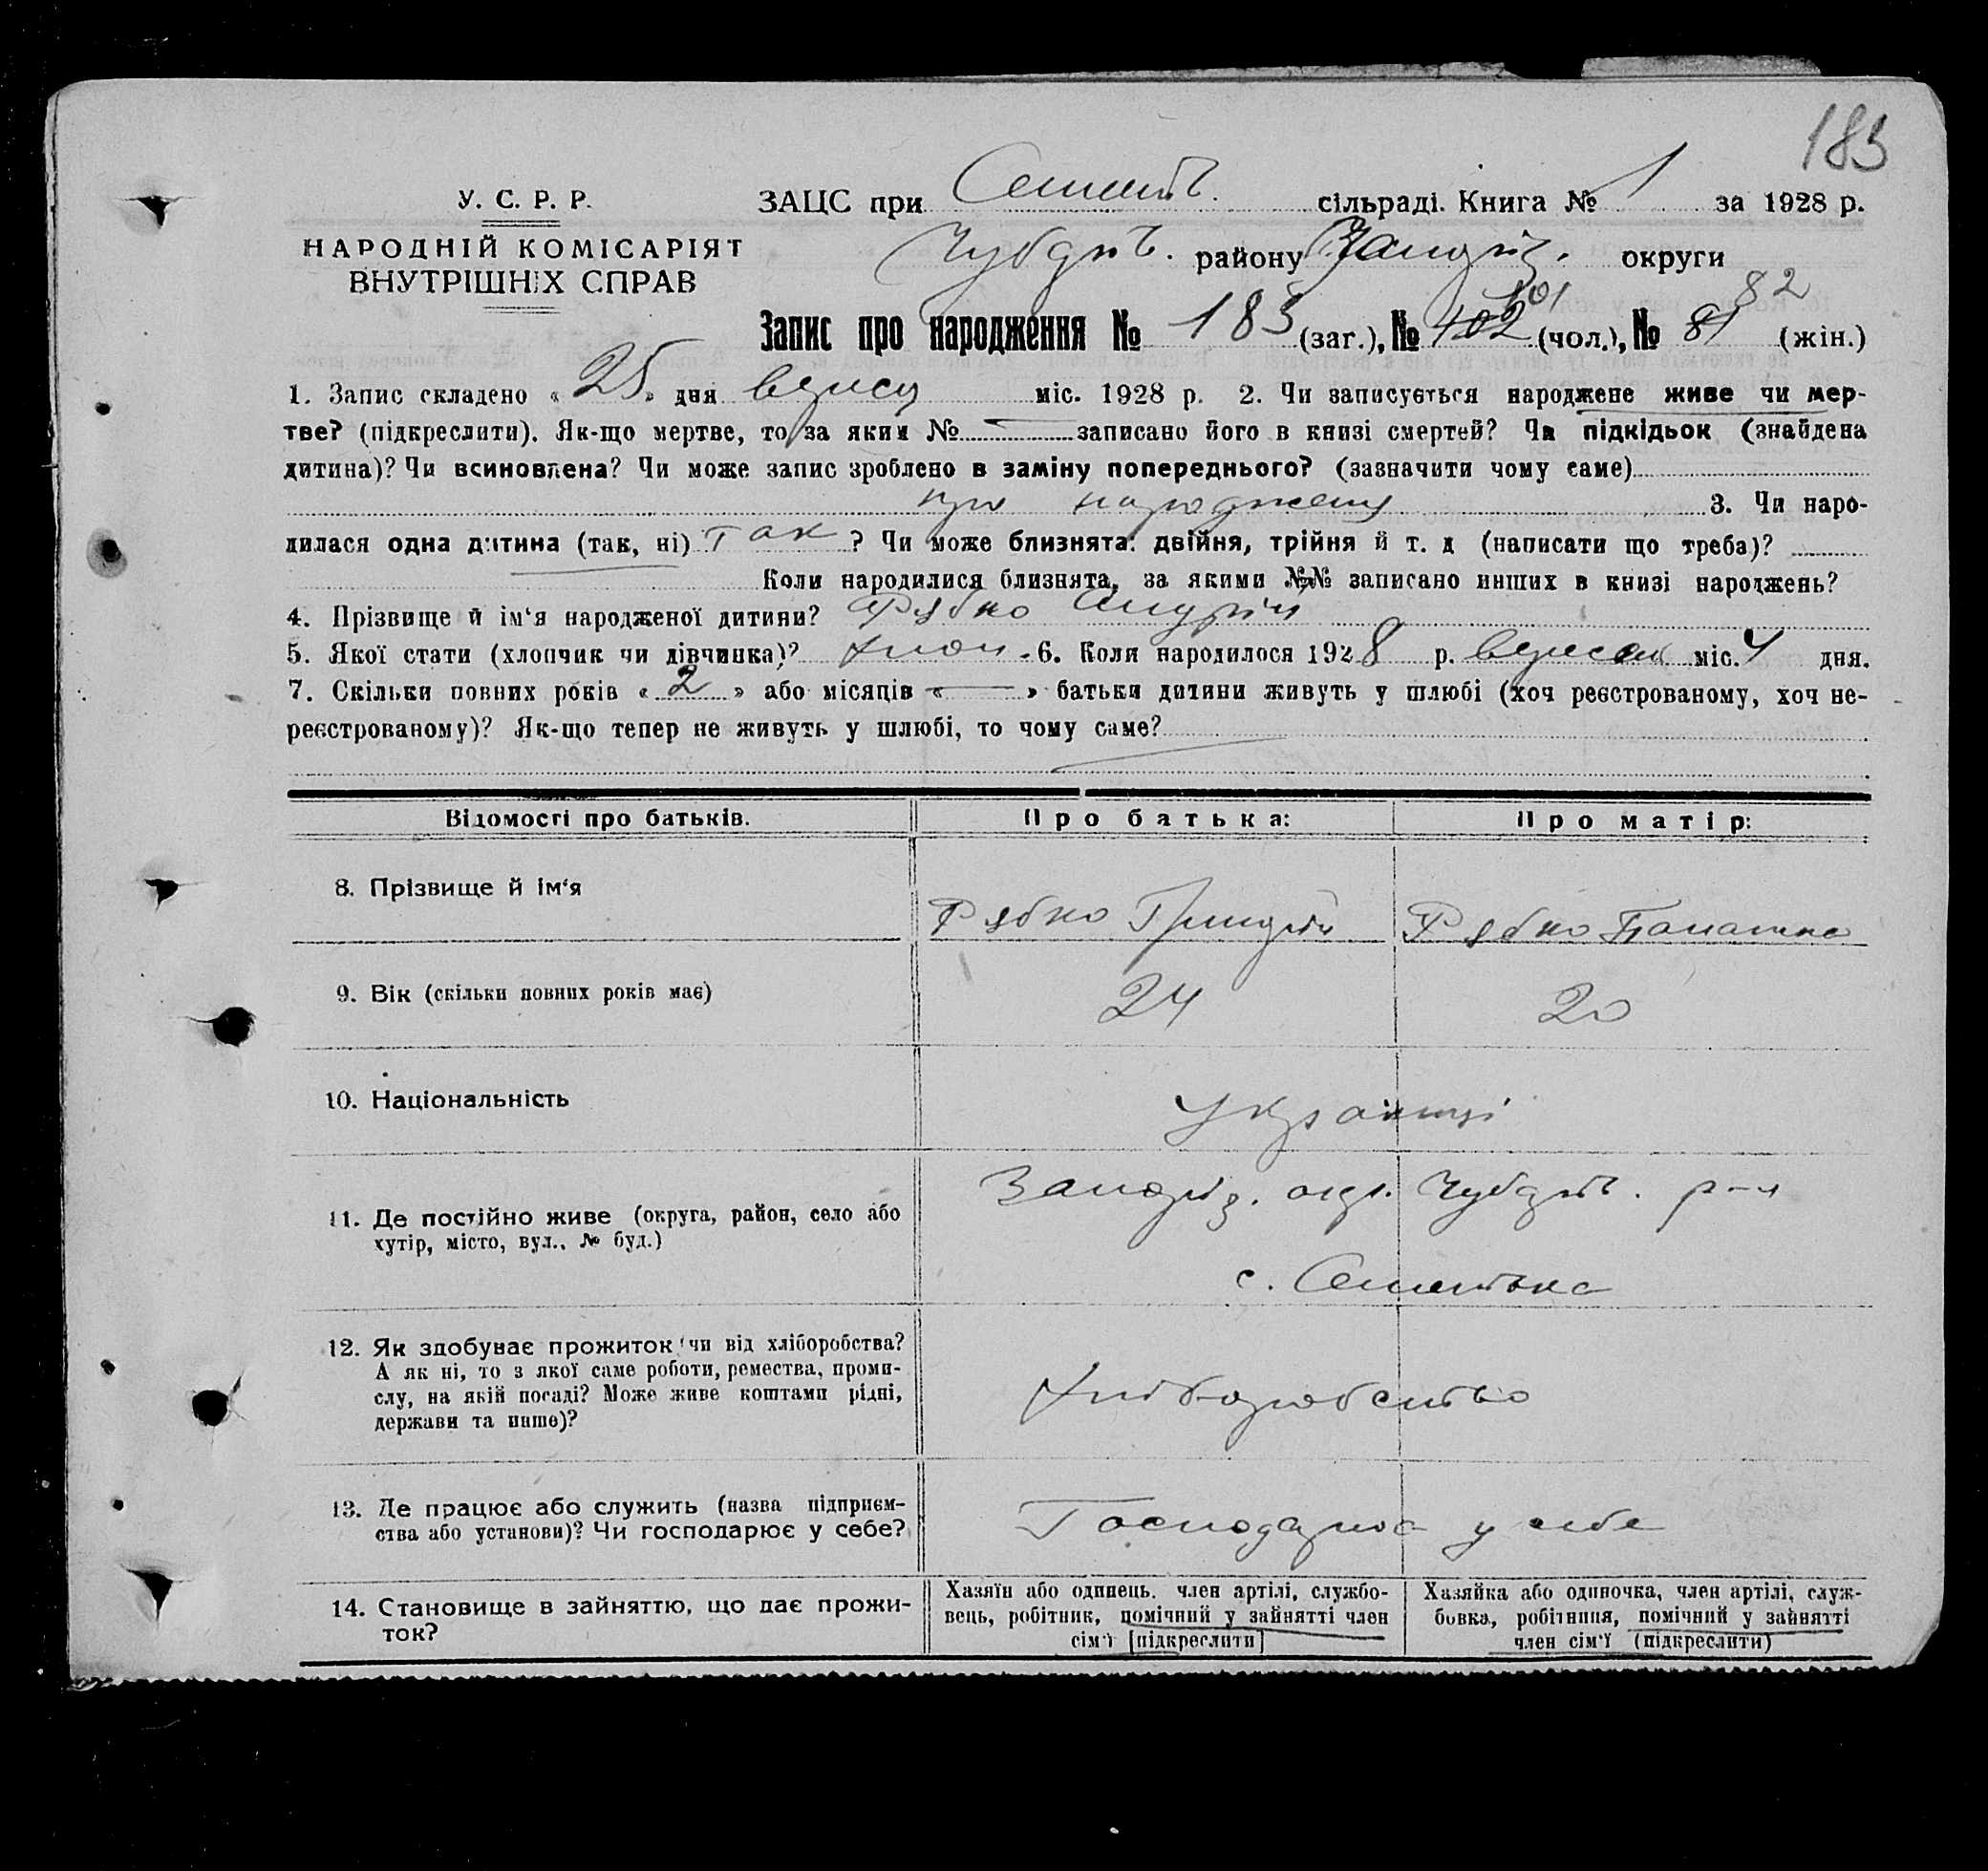 183
У. С. Р. Р.
НАРОДНІЙ КОМІСАРІЯТ
ВНУТРІШНІХ СПРАВ
ЗАЦС при Сементв. сільраді. Книга № 1 за 1928 р.
Чубарів. району Запоріз. округи
Запис про народження № 183 (заг.), № 102 101 (чол.), № 81 82 (жін.)
1. Запис складено « 25 » дня вересн міс. 1928 р. 2. Чи записується народжене живе чи мер-
тве? (підкреслити). Як-що мертве, то за яким № записано його в книзі смертей? Чи підкідьок (знайдена
дитина)? Чи всиновлена? Чи може запис зроблено в заміну попереднього? (зазначити чому саме)
про народження 3. Чи наро-
дилася одна дитина (так, ні) Так ? Чи може близнята: двійня, трійня й т. д (написати що треба)?
Коли народилися близнята, за якими №№ записано инших в книзі народжень?
4. Прізвище й ім‘я народженої дитини? Рябко Андрій
5. Якої стати (хлопчик чи дівчинка)? хлоп. 6. Коли народилося 1928 р. вересня міс. 4 дня.
7. Скільки повних років « 2 » або місяців « — » батьки дитини живуть у шлюбі (хоч реєстрованому, хоч не-
реєстрованому)? Як-що тепер не живуть у шлюбі, то чому саме?
Відомості про батьків. Про батька: Про матір:
8. Прізвище й ім‘я Рябко Рябко
9. Вік (скільки повних років має) 24 20
10. Національність Українці
11. Де постійно живе (округа, район, село або
хутір, місто, вул., № буд.)
Запоріз. окр. Чубарів. р-н
с.
12. Як здобуває прожиток чи від хліборобства?
А як ні, то з якої саме роботи, ремества, проми-
слу, на якій посаді? Може живе коштами рідні,
держави та инше)?
Хліборобство
13. Де працює або служить (назва підприєм-
ства або установи)? Чи господарює у себе?
Господарює у себе
14. Становище в зайняттю, що дає прожи-
ток?
Хазяїн або одинець, член артілі, службо-
вець, робітник, помічний у зайнятті член
сім‘ї [підкреслити]
Хазяйка або одиночка, член артілі, служ-
бовка, робітниця, помічний у зайнятті
член сім‘ї (підкреслити)